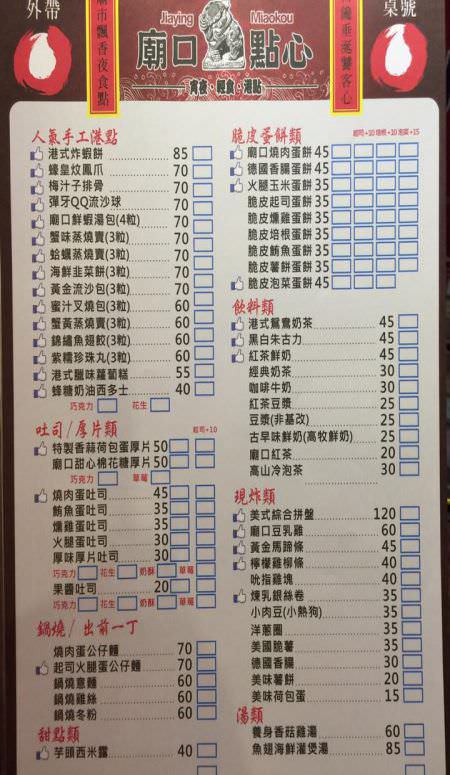 外帶
廟市飄香夜食點
Jiaying Miaokou
廟口點心
宵夜·輕食·港點
桌號
人氣手工港點
港式炸蝦餅 85
蠔皇炆鳳爪 70
梅汁子排骨 70
彈牙QQ流沙球 70
廟口鮮蝦湯包(4粒) 70
蟹味蒸燒賣(3粒) 70
蛤蠣蒸燒賣(3粒) 70
海鮮韭菜餅(3粒) 70
黃金流沙包(3粒) 70
蜜汁叉燒包(3粒) 60
蟹黃蒸燒賣(3粒) 60
錦繡魚翅餃(3粒) 60
紫糯珍珠丸(3粒) 60
港式臘味蘿蔔糕 55
蜂糖奶油西多士 40
巧克力 花生
吐司/厚片類 起司+10
特製香蒜荷包蛋厚片 50
廟口甜心棉花糖厚片 50
巧克力 草莓
燒肉蛋吐司 45
鮪魚蛋吐司 35
燻雞蛋吐司 35
火腿蛋吐司 30
厚味厚片吐司 30
巧克力 花生 奶酥 草莓
果醬吐司 20
巧克力 花生 奶酥 草莓
鍋燒/出前一丁
燒肉蛋公仔麵 70
起司火腿蛋公仔麵 70
鍋燒意麵 60
鍋燒雞絲 60
鍋燒冬粉 60
甜點類
芋頭西米露 40
脆皮蛋餅類 起司+10 培根+10 泡菜+15
廟口燒肉蛋餅 45
德國香腸蛋餅 45
火腿玉米蛋餅 35
脆皮起司蛋餅 35
脆皮燻雞蛋餅 35
脆皮培根蛋餅 35
脆皮鮪魚蛋餅 35
脆皮薯餅蛋餅 35
脆皮泡菜蛋餅 45
飲料類
港式鴛鴦奶茶 45
黑白朱古力 45
紅茶鮮奶 45
經典奶茶 30
咖啡牛奶 30
紅茶豆漿 25
豆漿(非基改) 25
古早味鮮奶(高牧鮮奶) 25
廟口紅茶 20
高山冷泡茶 30
現炸類
美式綜合拼盤 120
廟口豆乳雞 60
黃金馬蹄條 45
檸檬雞柳條 40
吮指雞塊 40
煉乳銀絲卷 35
小肉豆(小熱狗) 35
洋蔥圈 35
美國脆薯 35
德國香腸 30
美味薯餅 20
美味荷包蛋 15
湯類
養身香菇雞湯 60
魚翅海鮮灌煲湯 85